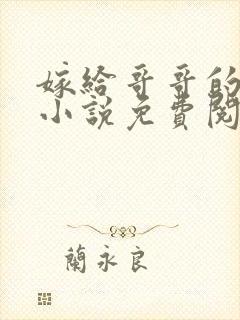 嫁給哥哥的
小說免費閱
蘭永良